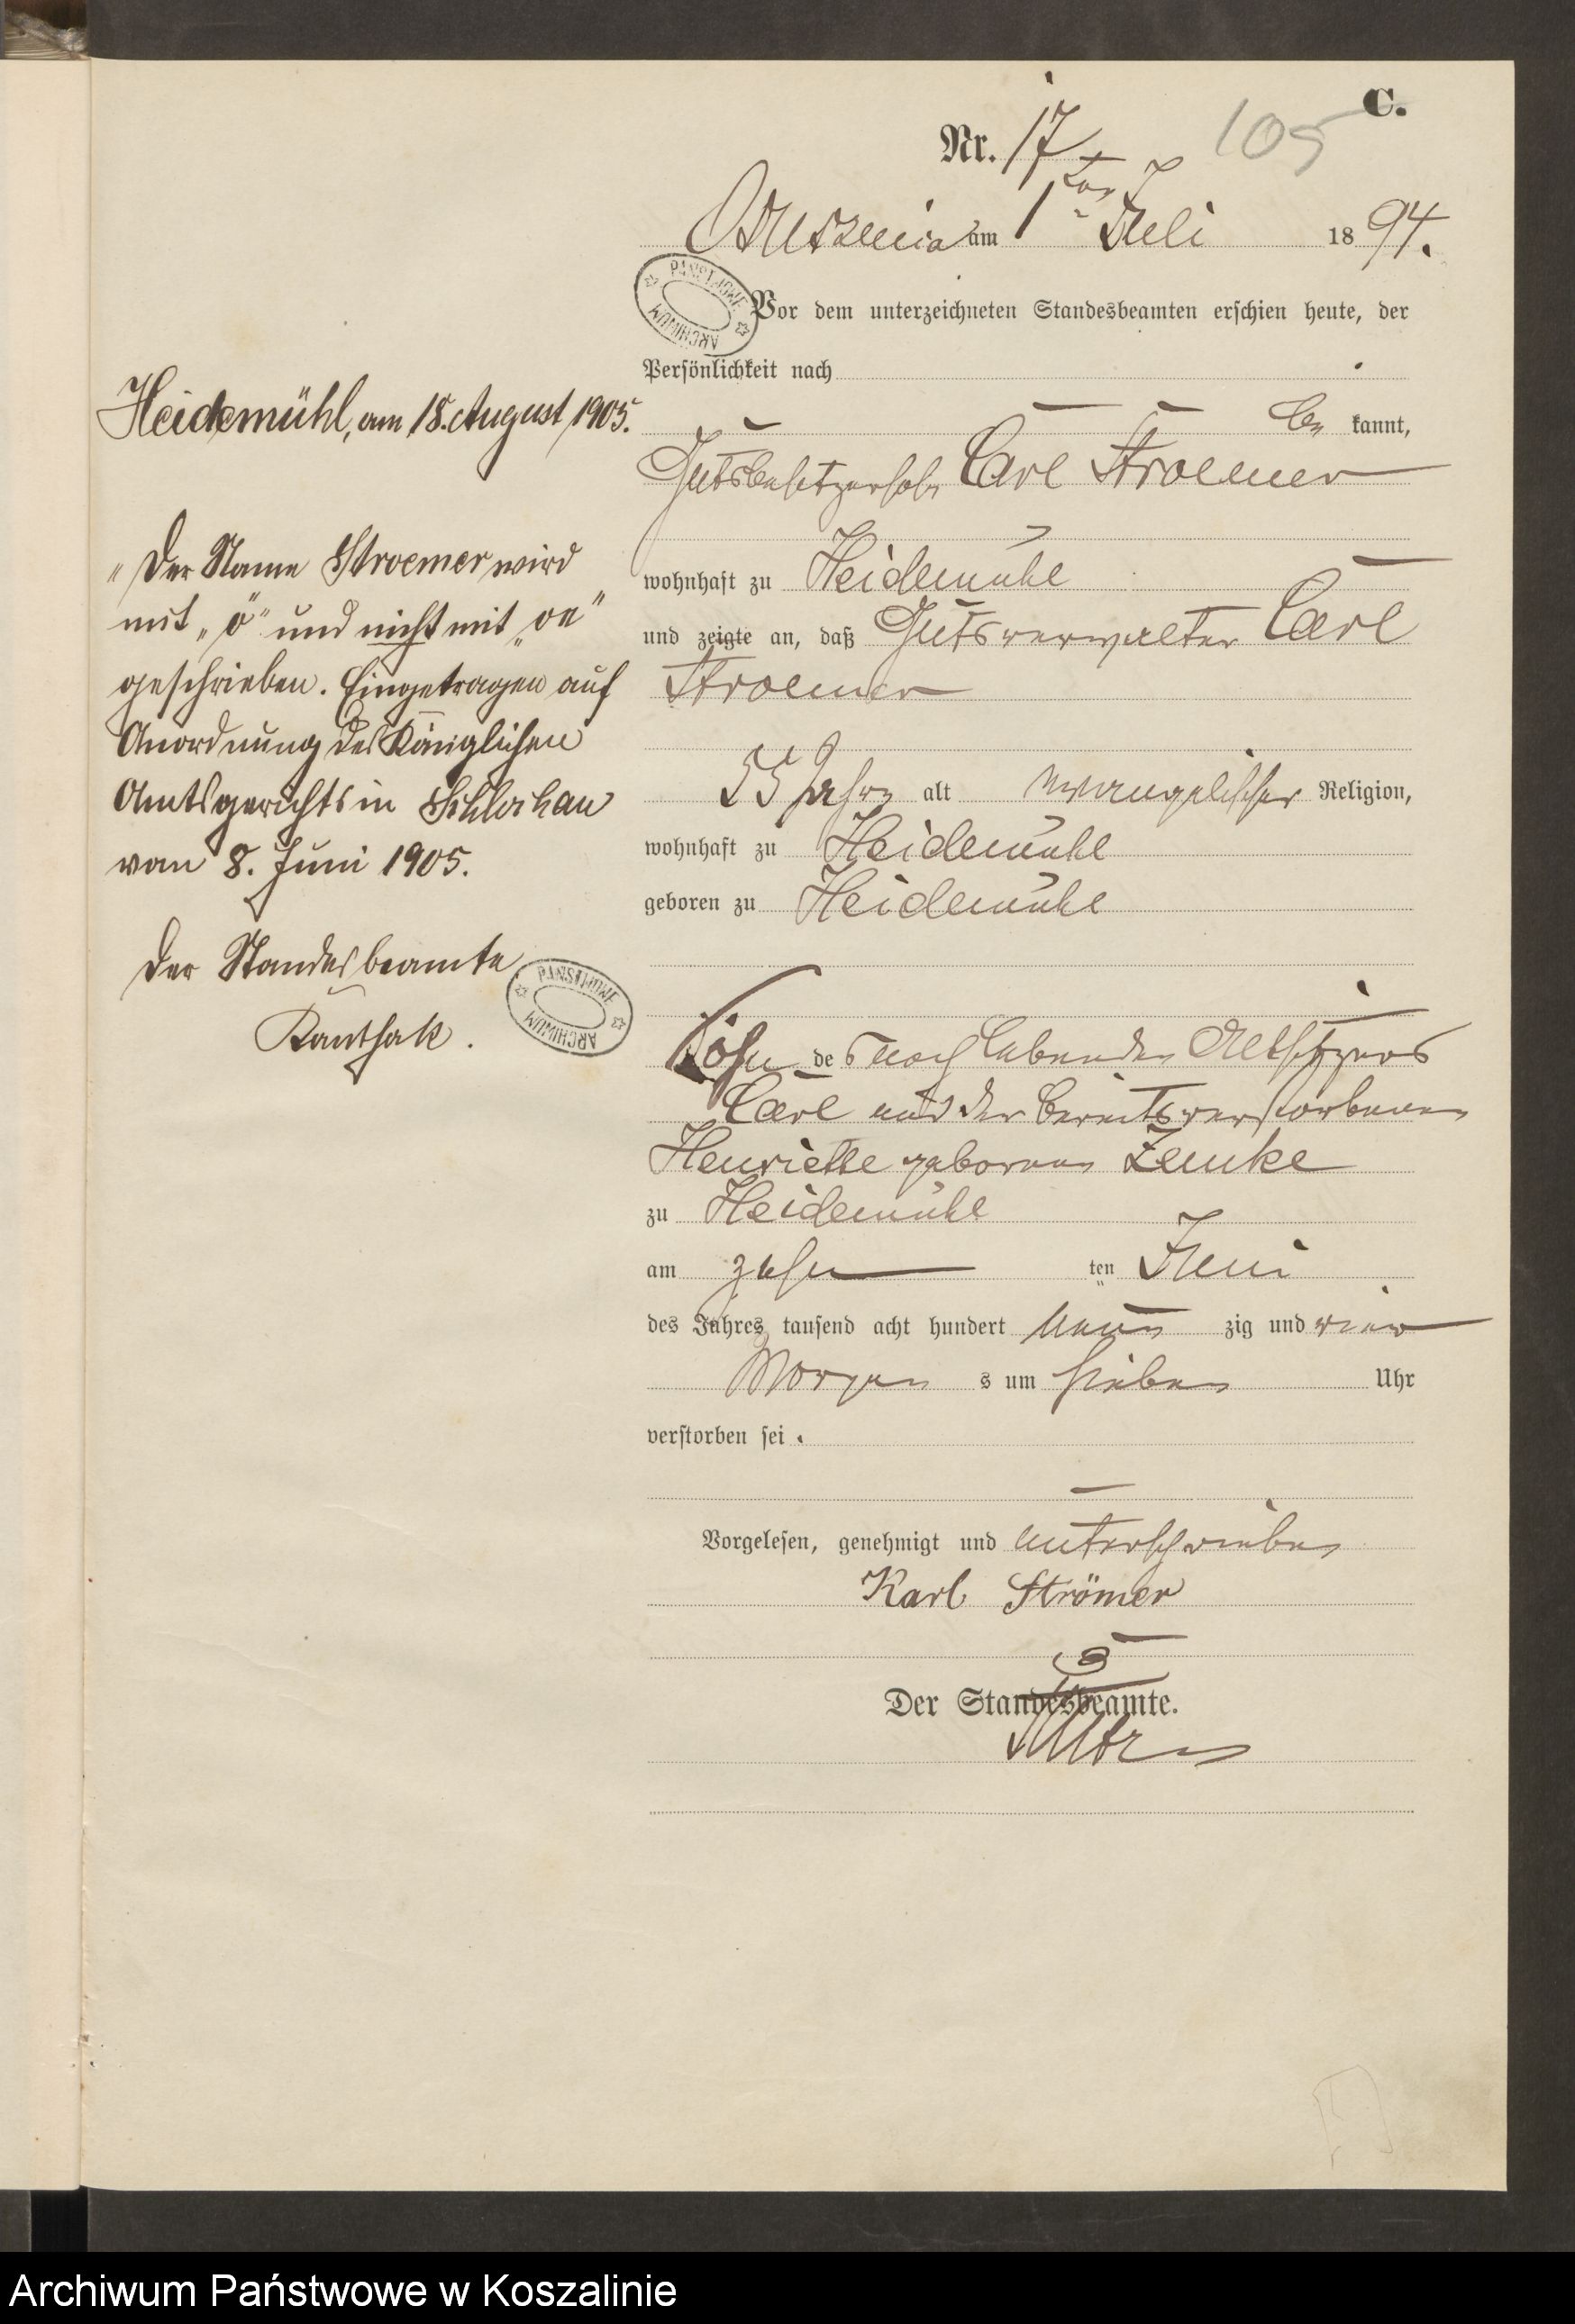 C.
Nr. 17
105
am 1ten Juli 1894.
PAŃSTWOWE ARCHIWUM
Vor dem unterzeichneten Standesbeamten erschien heute, der
Persönlichkeit nach
be kannt,
Gutsbesitzersohn Carl Stroemer
wohnhaft zu Heidemühl
und zeigte an, daß Gutsverwalter Carl
Stroemer
55 Jahre alt evangelischer Religion,
wohnhaft zu Heidemühl
geboren zu Heidemühl
Sohn des noch lebenden Altsitzers
Carl und der bereits verstorbenen
Henriette geborenen Zemke
zu Heidemühl
am zehn ten Juni
des Jahres tausend acht hundert neun zig und vier
Morgen s um sieben Uhr
verstorben sei.
Vorgelesen, genehmigt und unterschrieben
Karl Strömer
Der Standesbeamte.
Heidemühl, am 18. August 1905.
"Der Name Stroemer wird
mit „ö" und nicht mit „oe"
geschrieben. Eingetragen auf
Anordnung des Königlichen
Amtsgerichts in Schlochau
vom 8. Juni 1905.
Der Standesbeamte
PAŃSTWOWE ARCHIWUM
Ranthak.
Archiwum Państwowe w Koszalinie